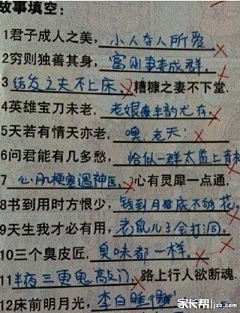 故事填空:
1君子成人之美,小人夺人所爱
2穷则独善其身,富则妻妾成群.
3结发之夫不上床,糟糠之妻不下堂.
4英雄宝刀未老.老娘风韵尤存.
5天若有情天亦老,噢,老天!
6问君能有几多愁,恰似一群太监上青
7心肌梗塞遇神医,心有灵犀一点通,
8书到用时方恨少,钱到月底不够花,
9天生我才必有用,老鼠儿子会打洞.
10三个臭皮匠,臭味都一样.
11半夜三更鬼敲门,路上行人欲断魂.
12床前明月光,李白睡
家长帮 jzb.com